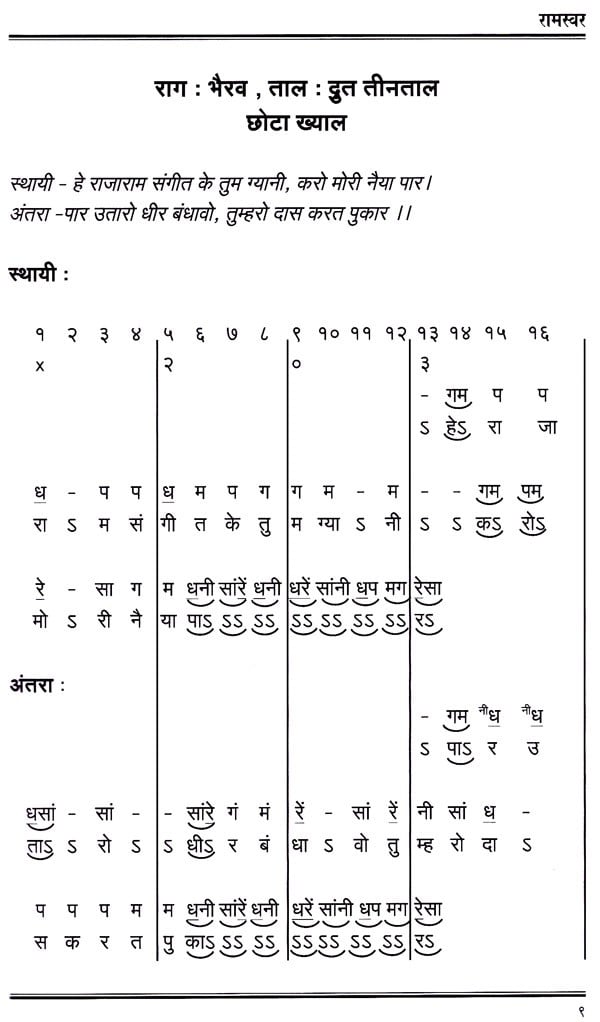 रामस्वर
राग : भैरव , ताल : द्रुत तीनताल
छोटा ख्याल
स्थायी - हे राजाराम संगीत के तुम ग्यानी, करो मोरी नैया पार।
अंतरा -पार उतारो धीर बंधावो, तुम्हरो दास करत पुकार ।।
स्थायी :
१ २ ३ ४ ५ ६ ७ ८ ९ १० ११ १२ १३ १४ १५ १६
x २ ० ३
- गम प प
ऽ हेऽ रा जा
ध॒ - प प ध॒ म प ग ग म - म - - गम पम
रा ऽ म सं गी त के तु म ग्या ऽ नी ऽ ऽ कऽ रोऽ
रे॒ - सा ग म ध॒नी सांरें॒ ध॒नी ध॒रें॒ सांनी ध॒प मग रे॒सा
मो ऽ री नै या पाऽ ऽऽ ऽऽ ऽऽ ऽऽ ऽऽ ऽऽ रऽ
अंतरा :
- गम नीध॒ नीध॒
ऽ पाऽ र उ
ध॒सां - सां - - सांरे॒ गं मं रें॒ - सां रें॒ नी सां ध॒ -
ताऽ ऽ रो ऽ ऽ धीऽ र बं धा ऽ वो तु म्ह रो दा ऽ
प प प म म ध॒नी सांरें॒ ध॒नी ध॒रें॒ सांनी ध॒प मग रे॒सा
स क र त पु काऽ ऽऽ ऽऽ ऽऽ ऽऽ ऽऽ ऽऽ रऽ
९